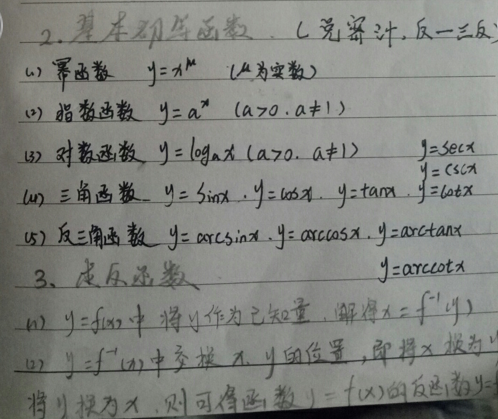 2. 基本初等函数. (
反一三反
(1) 幂函数 y=x^μ (μ为实数)
(2) 指数函数 y=a^x (a>0. a≠1)
(3) 对数函数 y=log_a x (a>0. a≠1) y=secx
y=cscx
(4) 三角函数 y=sinx. y=cosx. y=tanx. y=cotx
(5) 反三角函数 y=arcsinx. y=arccosx. y=arctanx
y=arccotx
3、求反函数
(1) y=f(x) 中将y作为已知量. 解得x=f^-1(y)
(2) y=f^-1(x) 中交换 x. y的位置, 即将x换为y
将y换为x. 则可得函数y=f(x)的反函数y=